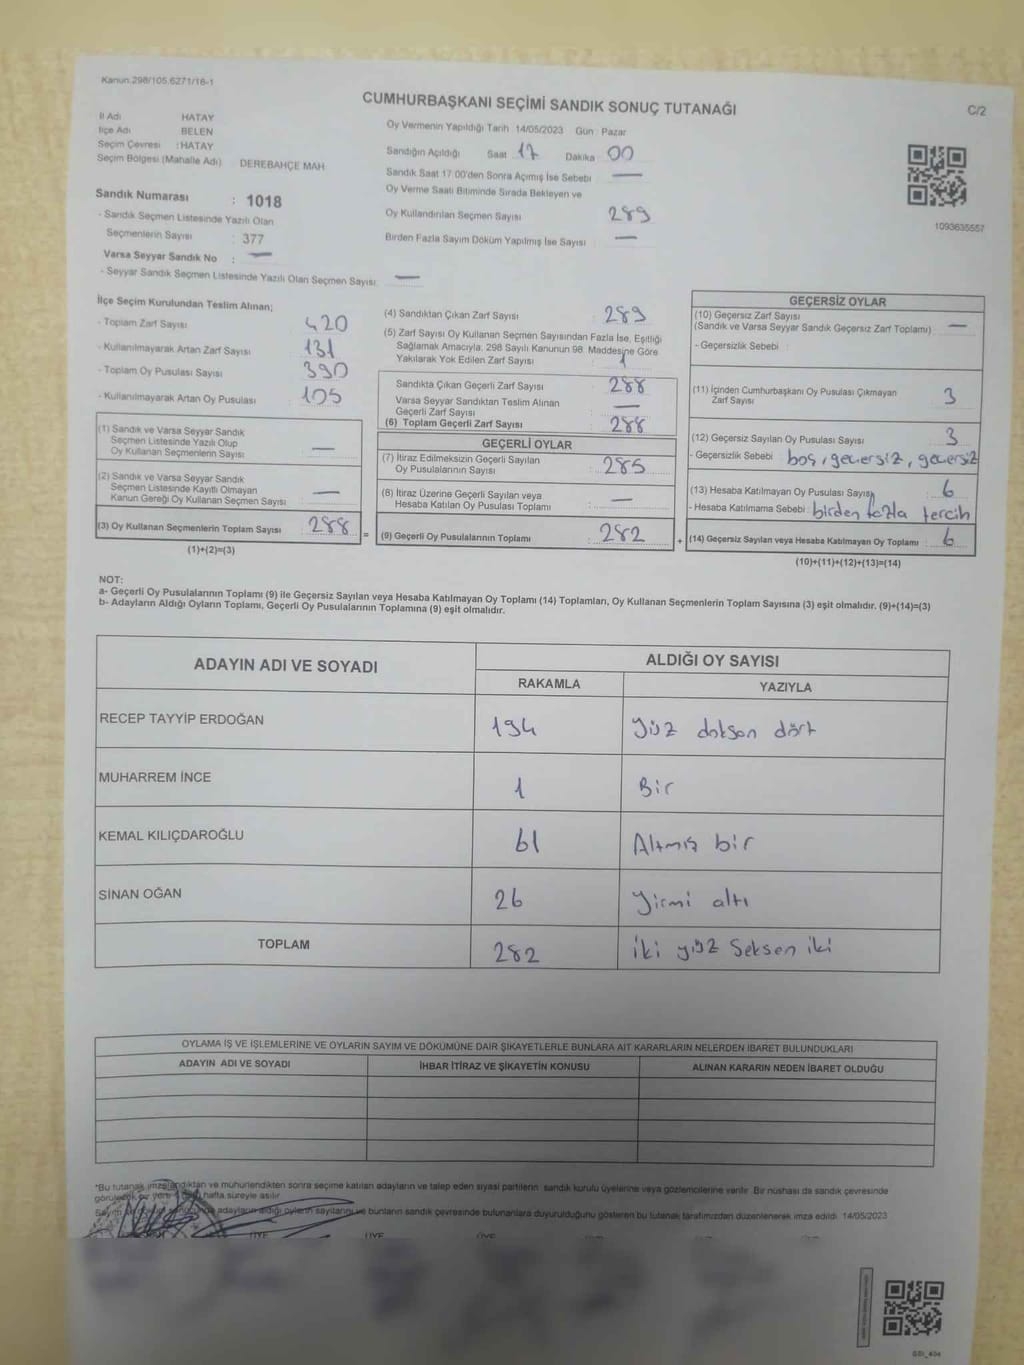 Kanun.298/105,6271/16-1
CUMHURBAŞKANI SEÇİMİ SANDIK SONUÇ TUTANAĞI
C/2
İl Adı HATAY
İlçe Adı BELEN
Seçim Çevresi : HATAY
Seçim Bölgesi (Mahalle Adı) DEREBAHÇE MAH
Oy Vermenin Yapıldığı Tarih 14/05/2023 Gün : Pazar
Sandığın Açıldığı Saat 17 Dakika 00
Sandık Saat 17.00'den Sonra Açımış İse Sebebi —
Oy Verme Saati Bitiminde Sırada Bekleyen ve
Oy Kullandırılan Seçmen Sayısı 289
Birden Fazla Sayım Döküm Yapılmış İse Sayısı —
1093635557
Sandık Numarası : 1018
- Sandık Seçmen Listesinde Yazılı Olan
Seçmenlerin Sayısı : 377
Varsa Seyyar Sandık No : —
- Seyyar Sandık Seçmen Listesinde Yazılı Olan Seçmen Sayısı: —
İlçe Seçim Kurulundan Teslim Alınan;
- Toplam Zarf Sayısı 420
- Kullanılmayarak Artan Zarf Sayısı 131
- Toplam Oy Pusulası Sayısı 390
- Kullanılmayarak Artan Oy Pusulası 105
(1) Sandık ve Varsa Seyyar Sandık
Seçmen Listesinde Yazılı Olup
Oy Kullanan Seçmenlerin Sayısı —
(2) Sandık ve Varsa Seyyar Sandık
Seçmen Listesinde Kayıtlı Olmayan
Kanun Gereği Oy Kullanan Seçmen Sayısı : —
(3) Oy Kullanan Seçmenlerin Toplam Sayısı 288
(1)+(2)=(3)
=
(4) Sandıktan Çıkan Zarf Sayısı 289
(5) Zarf Sayısı Oy Kullanan Seçmen Sayısından Fazla İse, Eşitliği
Sağlamak Amacıyla, 298 Sayılı Kanunun 98. Maddesine Göre
Yakılarak Yok Edilen Zarf Sayısı 1
Sandıkta Çıkan Geçerli Zarf Sayısı 288
Varsa Seyyar Sandıktan Teslim Alınan
Geçerli Zarf Sayısı —
(6) Toplam Geçerli Zarf Sayısı 288
GEÇERLİ OYLAR
(7) İtiraz Edilmeksizin Geçerli Sayılan
Oy Pusulalarının Sayısı 285
(8) İtiraz Üzerine Geçerli Sayılan veya
Hesaba Katılan Oy Pusulası Toplamı —
(9) Geçerli Oy Pusulalarının Toplamı 282
+
GEÇERSİZ OYLAR
(10) Geçersiz Zarf Sayısı
(Sandık ve Varsa Seyyar Sandık Geçersiz Zarf Toplamı) —
- Geçersizlik Sebebi :
(11) İçinden Cumhurbaşkanı Oy Pusulası Çıkmayan
Zarf Sayısı 3
(12) Geçersiz Sayılan Oy Pusulası Sayısı 3
- Geçersizlik Sebebi : boş, geçersiz, geçersiz
(13) Hesaba Katılmayan Oy Pusulası Sayısı 6
- Hesaba Katılmama Sebebi : birden fazla tercih
(14) Geçersiz Sayılan veya Hesaba Katılmayan Oy Toplamı : 6
(10)+(11)+(12)+(13)=(14)
NOT:
a- Geçerli Oy Pusulalarının Toplamı (9) ile Geçersiz Sayılan veya Hesaba Katılmayan Oy Toplamı (14) Toplamları, Oy Kullanan Seçmenlerin Toplam Sayısına (3) eşit olmalıdır. (9)+(14)=(3)
b- Adayların Aldığı Oyların Toplamı, Geçerli Oy Pusulalarının Toplamına (9) eşit olmalıdır.
ADAYIN ADI VE SOYADI
ALDIĞI OY SAYISI
RAKAMLA YAZIYLA
RECEP TAYYİP ERDOĞAN 194 Yüz doksan dört
MUHARREM İNCE 1 Bir
KEMAL KILIÇDAROĞLU 61 Altmış bir
SİNAN OĞAN 26 Yirmi altı
TOPLAM 282 iki yüz Seksen iki
OYLAMA İŞ VE İŞLEMLERİNE VE OYLARIN SAYIM VE DÖKÜMÜNE DAİR ŞİKAYETLERLE BUNLARA AİT KARARLARIN NELERDEN İBARET BULUNDUKLARI
ADAYIN ADI VE SOYADI İHBAR İTİRAZ VE ŞİKAYETİN KONUSU ALINAN KARARIN NEDEN İBARET OLDUĞU
*Bu tutanak imzalandıktan ve mühürlendikten sonra seçime katılan adayların ve talep eden siyasi partilerin sandık kurulu üyelerine veya gözlemcilerine verilir. Bir nüshası da sandık çevresinde
görülecek bir yere hafta süreyle asılır
adayların aldığı oyların sayılarını ve bunların sandık çevresinde bulunanlara duyurulduğunu gösteren bu tutanak tarafımızdan düzenlenerek imza edildi. 14/05/2023
ÜYE ÜYE ÜYE